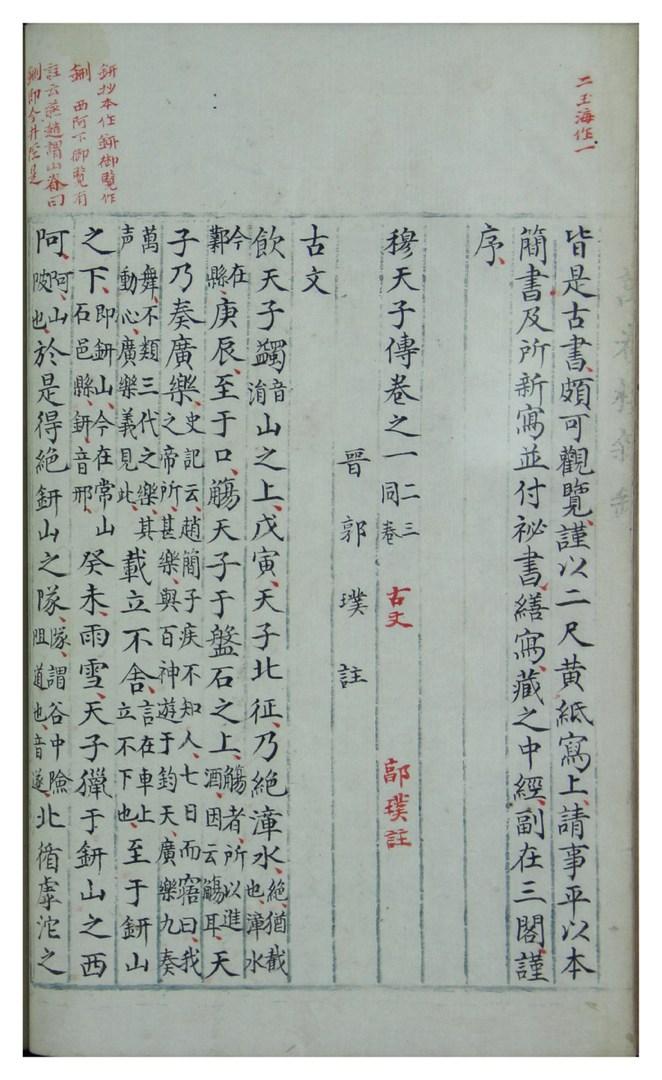 二玉海作一
鈃抄本作鈃御覽作
鉶 西阿下御覽有
註云燕趙謂山脊曰
鉶即今井陘是
皆是古書頗可觀覽謹以二尺黄紙寫上請事平以本
簡書及所新寫並付祕書繕寫藏之中經副在三閣謹
序
穆天子傳卷之一二三同卷 古文 郭璞註
晉郭璞註
古文
飲天子蠲音涓山之上戊寅天子北征乃絕漳水絕猶截也漳水
今在鄴縣庚辰至于口觴天子于盤石之上觴者所以進酒因云觴耳天
子乃奏廣樂史記云趙簡子疾不知人七日而寤曰我之帝所甚樂與百神遊于鈞天廣樂九奏
萬舞不類三代之樂其声動心廣樂義見此載立不舍言在車上立不下也至于鈃山
之下即鈃山今在常山石邑縣鈃音邢癸未雨雪天子獵于鈃山之西
阿阿山陂也於是得絕鈃山之隊隊謂谷中險阻道也音遂北循虖沱之